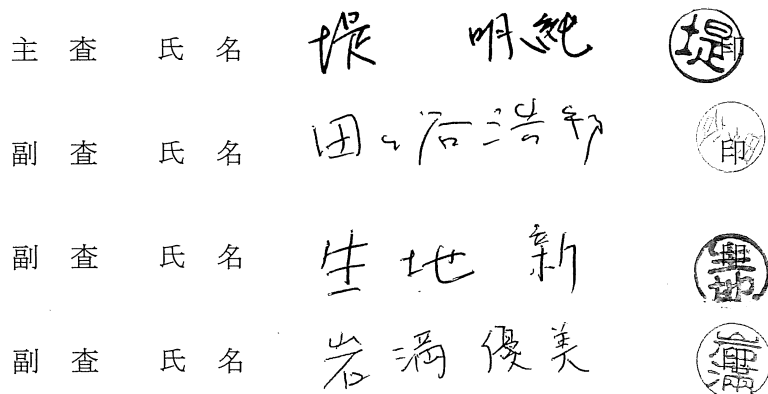 主査 氏名 堤 明純 堤 印
副査 氏名 田ヶ谷浩邦 印
副査 氏名 生地 新 生地 印
副査 氏名 岩満優美 岩満 印